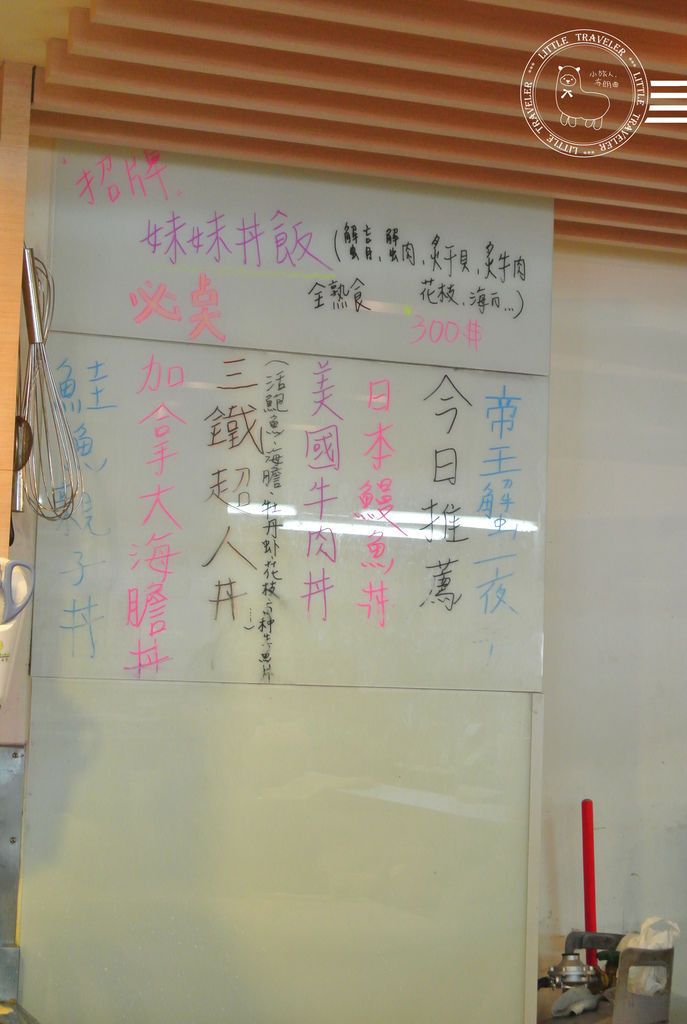 招牌
妹妹丼飯
(蟹膏、蟹肉、炙干貝、炙牛肉
全熟食
花枝、海
必点
300$
帝王蟹一夜
今日推薦
日本鰻魚丼
美國牛肉丼
(活鮑魚、海膽、牡丹虾、花枝、5种生魚片
……)
三鐵超人丼
加拿大海膽丼
鮭魚親子丼
LITTLE TRAVELER
LITTLE TRAVELER
LITTLE TRAVELER
小旅人